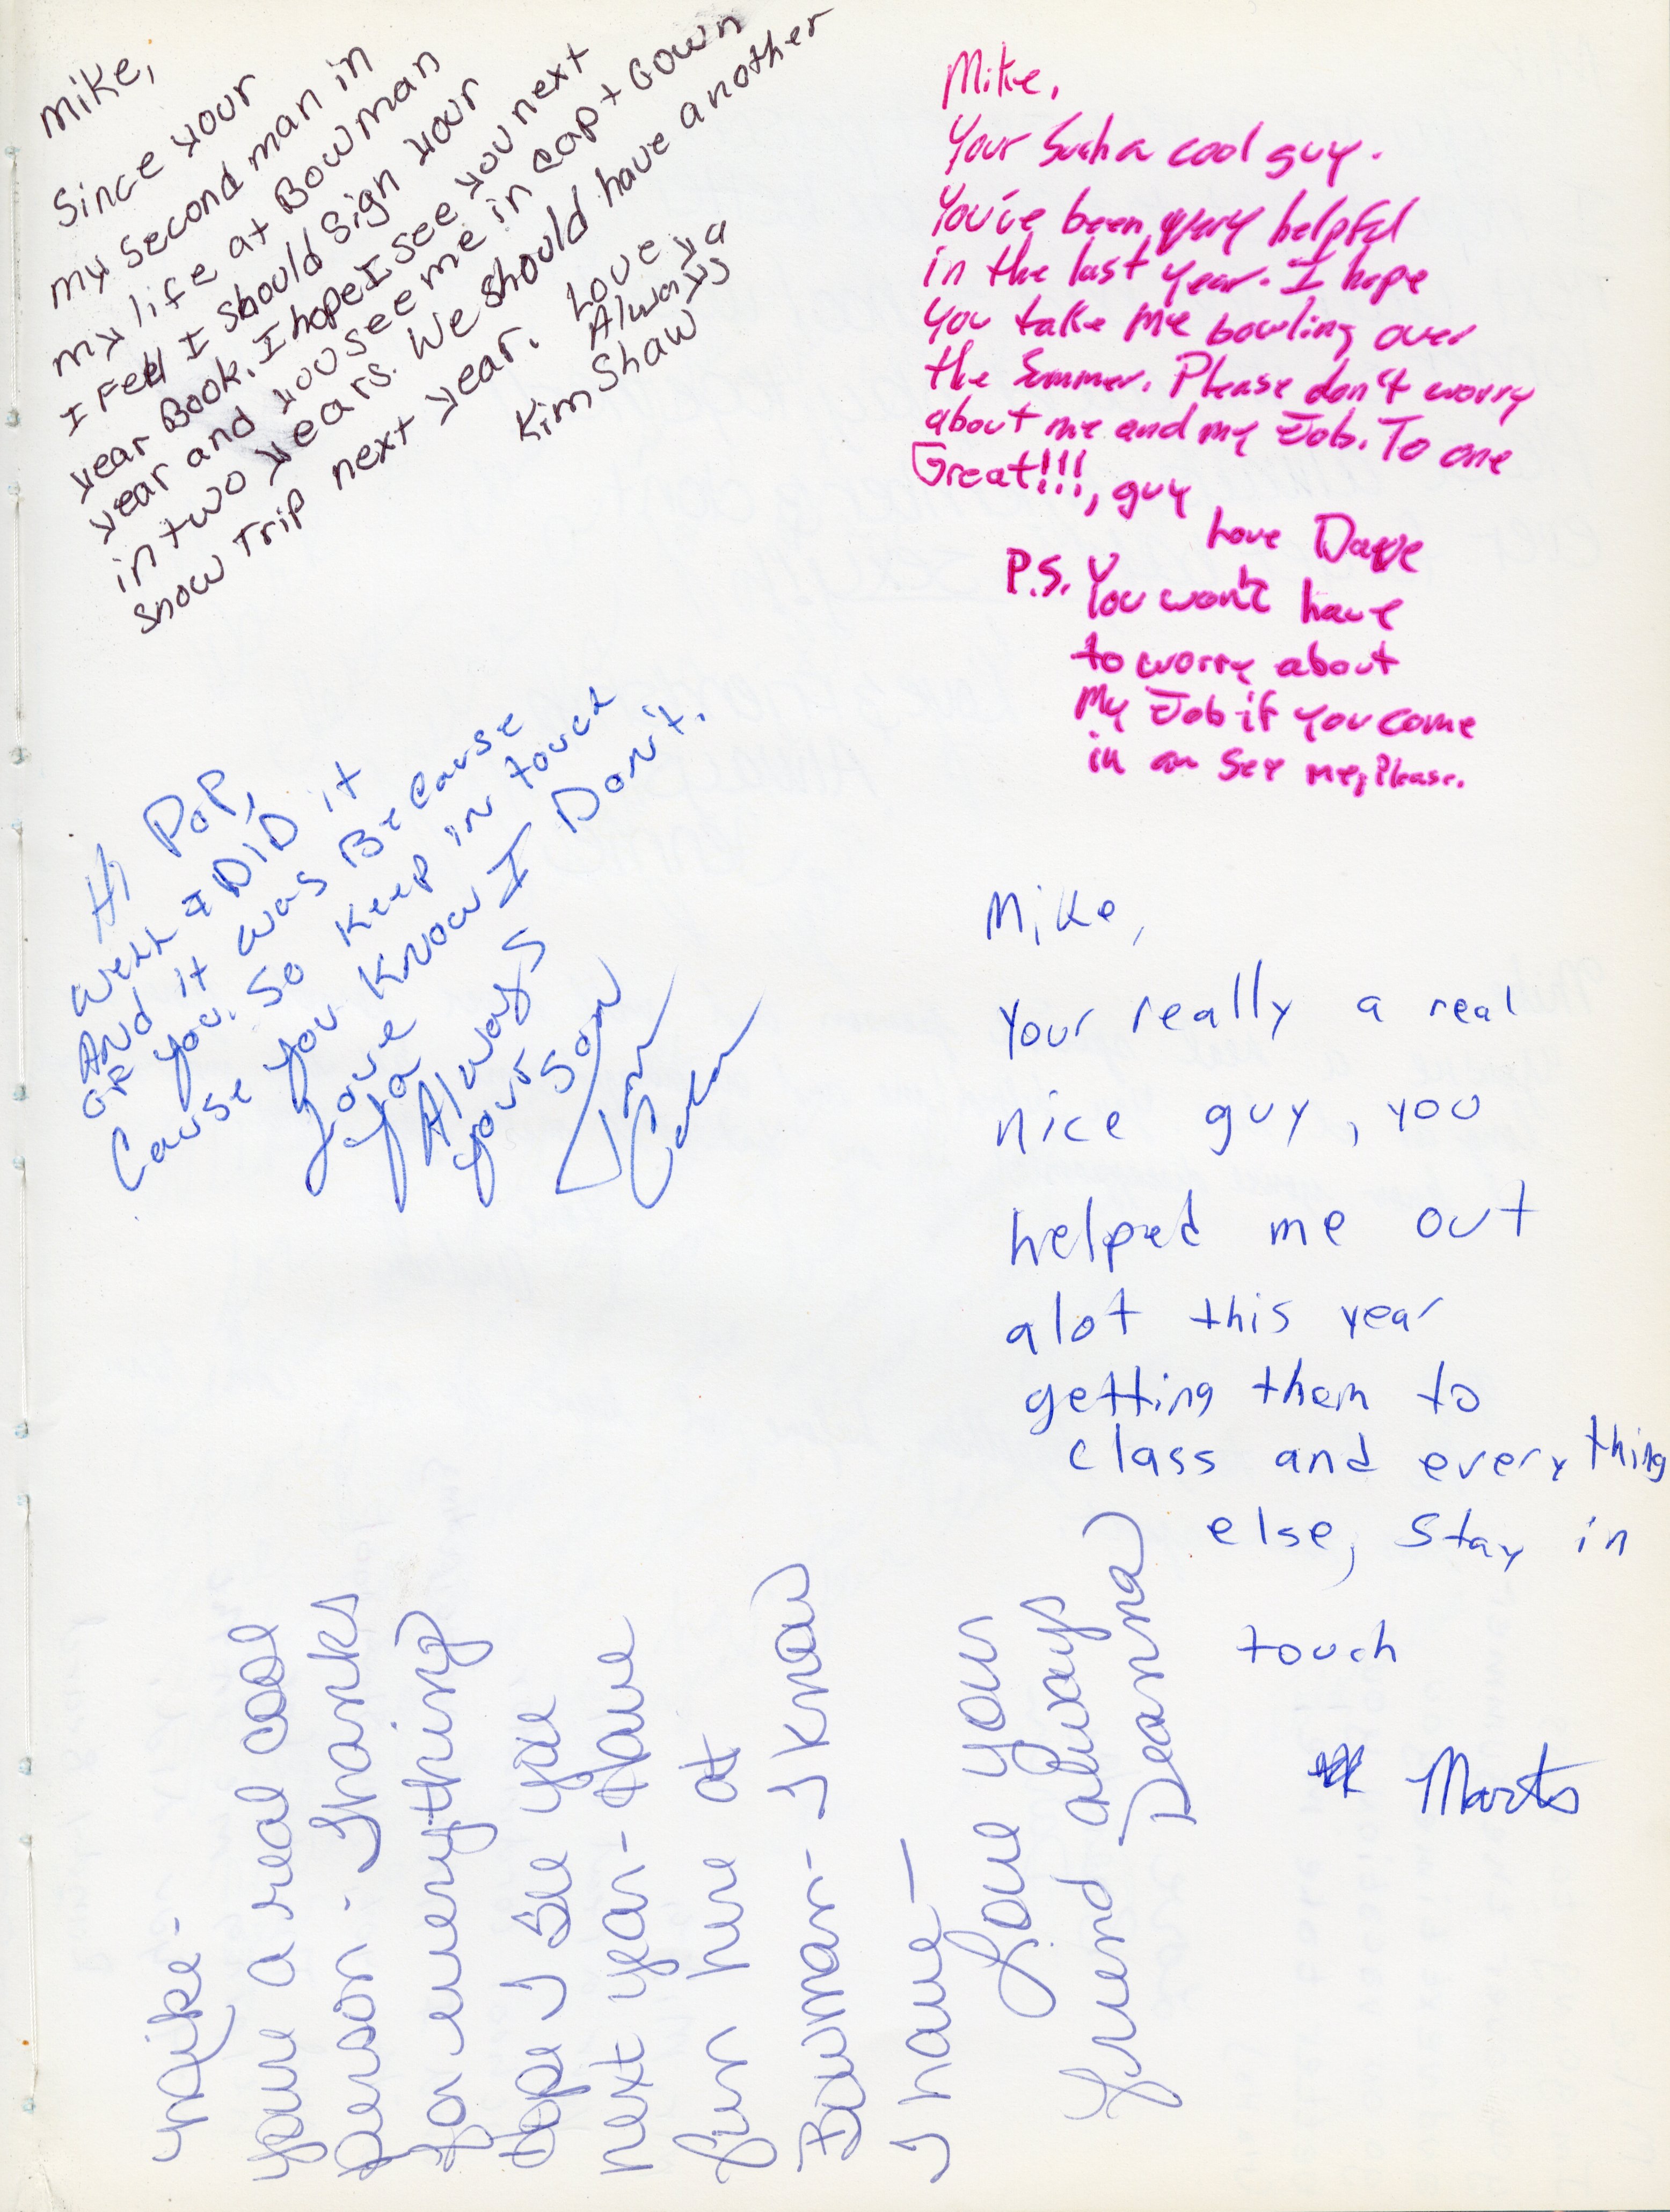 Mike,
Since your
my second man in
my life at Bowman
I Feel I should sign your
year Book. I hope I see you next
year and you see me in cap + Gown
in two years. We should have another
snow Trip next year. Love ya
Always
Kim Shaw
Mike,
Your Such a cool guy.
You've been very helpful
in the last year. I hope
you take me bowling over
the Summer. Please don't worry
about me and my Job. To one
Great!!!, guy
Love Dave
P.S. You won't have
to worry about
My Job if you come
in an See me, Please.
Hi Pop,
Well I DID it
And it was Because
of you. So keep in touch
Cause you know I Don't.
Love
ya
Always
your son
Mike,
Your really a real
nice guy, you
helped me out
alot this year
getting them to
class and everything
else, Stay in
touch
Marts
Mike-
your a real cool
person - Thanks
for everything
Hope I see you
next year- Have
fun here at
Bowman- I know
I have-
Love your
friend always
Deanna